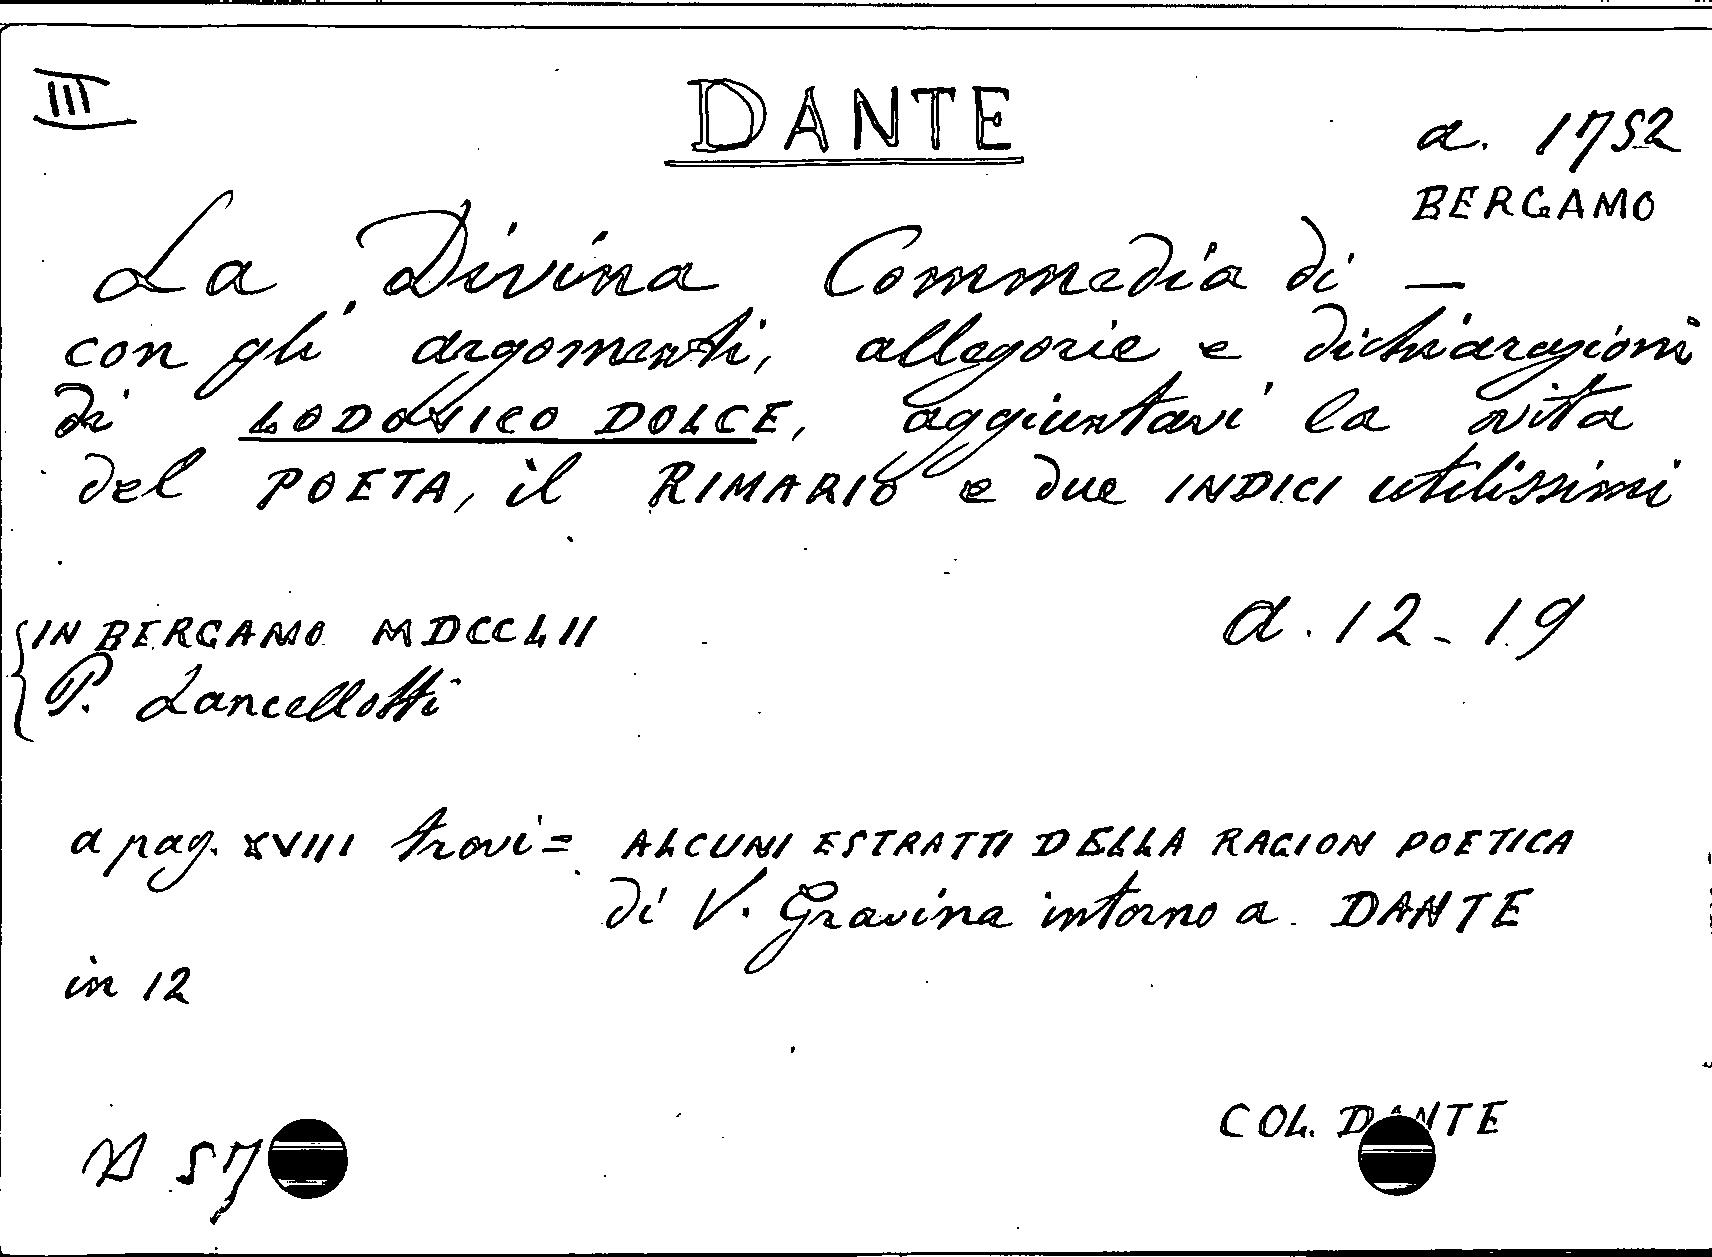 III
DANTE
a. 1752
BERGAMO
La Divina Commedia di —
con gli argomenti, allegorie e dichiarazioni
di LODOVICO DOLCE, aggiuntavi la vita
del POETA, il RIMARIO e due INDICI utilissimi
IN BERGAMO MDCCLII
a. 12-19
P. Lancellotti
a pag. XVIII trovi= ALCUNI ESTRATTI DELLA RAGION POETICA
di V. Gravina intorno a DANTE
in 12
COL. DANTE
N 57